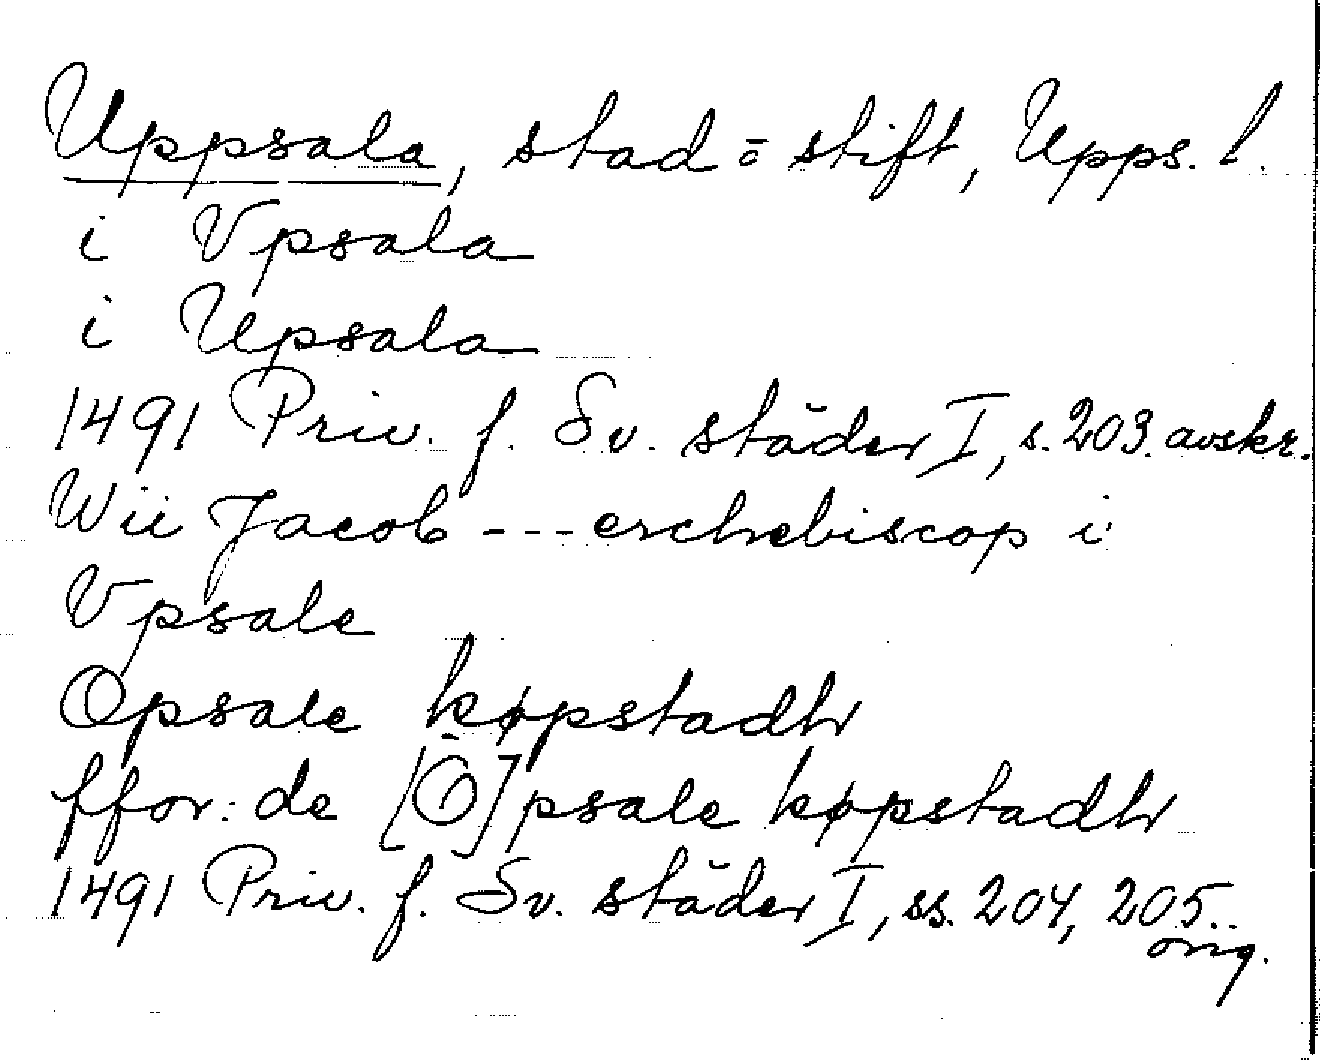 Uppsala, stad o stift, Upps. l.
i Vpsala
i Upsala
1491 Priv. f. Sv. städer I, s. 203. avskr.
Wii Jacob --- erchebiscop i
Vpsale
Opsale køpstadhr
ffor: de [O]psale køpstadhr
1491 Priv. f. Sv. städer I, ss. 204, 205..
orig.